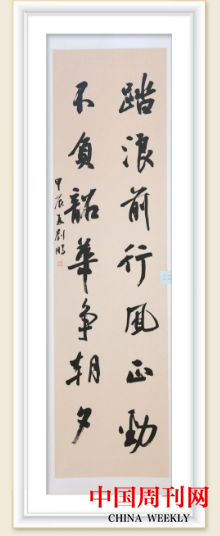 踏浪前行风正劲
不负韶华争朝夕
甲辰夏刘鹏
中国周刊网
CHINA WEEKLY